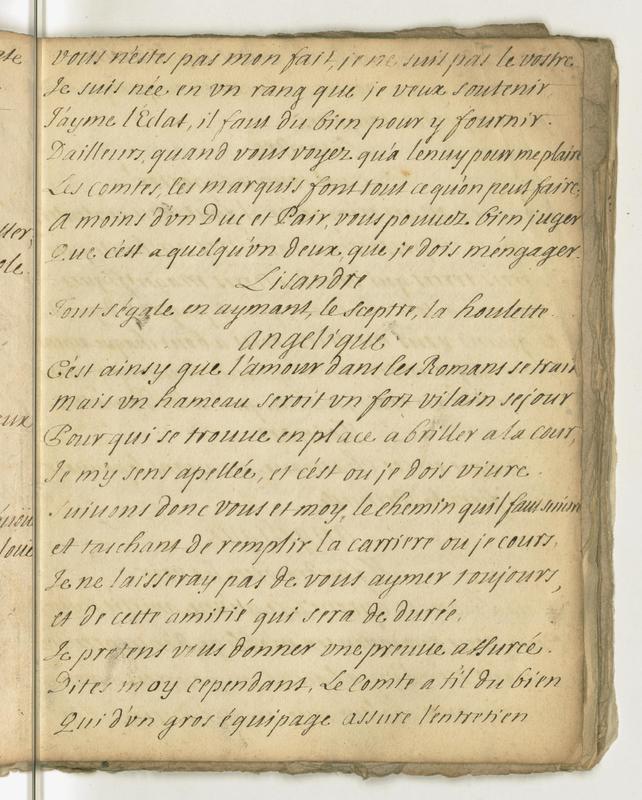 vous n'estes pas mon fait, je ne suis pas le vostre
Je suis née en vn rang que je veux soutenir
J'ayme l'Eclat, il faut du bien pour y fournir.
Dailleurs, quand vous voyez qu'a lenuy pour me plaire
Les comtes, les marquis font tout ce qu'on peut faire,
A moins d'vn Duc et Pair, vous pouuez bien juger
Que c'est a quelqu'vn deux, que je dois ménager.
Lisandre
Tout s'égale en aymant, le sceptre, la houlette.
angelique
C'est ainsy que l'amour dans les Romans se trait
mais vn hameau seroit vn fort vilain sejour
Pour qui se trouue en place a briller a la cour,
Je m'y sens apellée, et c'ést ou je dois viure.
suiuons donc vous et moy, le chemin quil faut suiure
et taschant de remplir la carriere ou je cours,
Je ne laisseray pas de vous aymer toujours,
et de cette amitié qui sera de durée.
Je pretens vous donner vne preuue assurée.
Dites moy cependant, Le Comte a t'il du bien
Qui d'vn gros équipage assure l'entretien